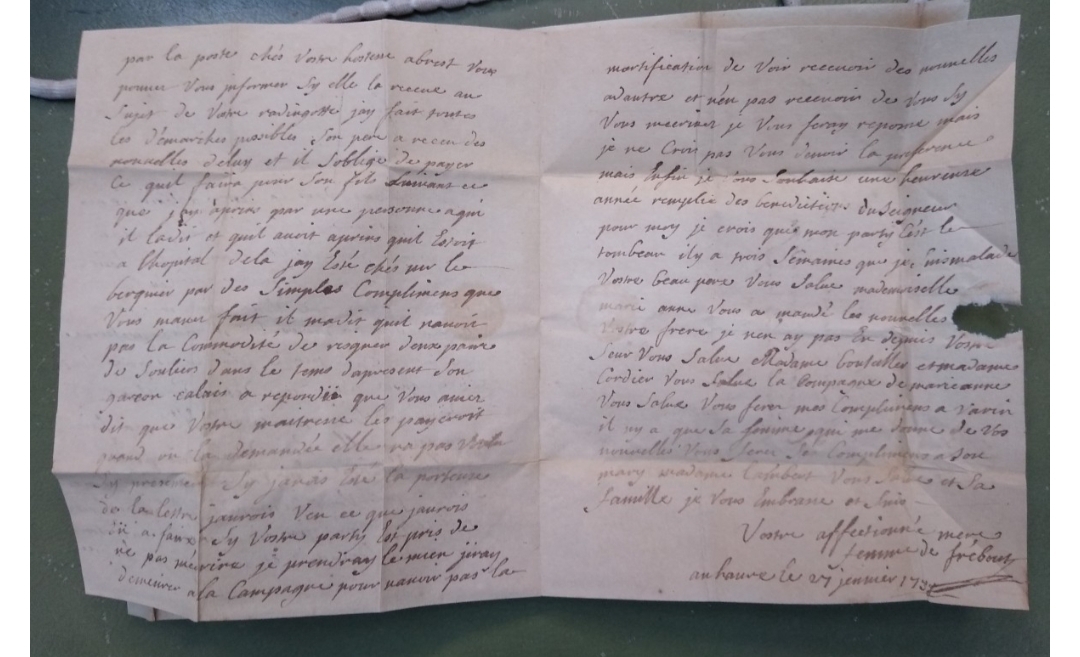 par la poste chés vostre hostesse abrest vous
pouvez vous jnformer sy elle la receue au
sujet de vatre radingotte jay fait toutes
les démarches possibles son pere a receu des
nouvelles deluy et il soblige de payer
ce quil faira pour son fils suivant ce
que jay apris par une personne aqui
il ladit et quil avoit apris quil estoit
a lhopital dela jay esté chés mr le
berquier par des simples complimens que
vous mavez fait il madit quil navoit
pas la commodité de risquer deux paire
de souliers dans le tems dapresent son
garcon calais a repondu que vous aviez
dit que vostre maitresse les payeroit
quand on la demandée elle na pas voulu
sy javais esté la porteuse
de la lettre jaurois veu ce que jaurois
a faire sy vostre party est pris de
ne pas mécrire je prendray le mien jiray
demeurer a la campagne pour navoir pas la
mortification de voir recevoir des nouvelles
adautre et nen pas recevoir de vous sy
vous mecrivez je vous feray reponse mais
je ne crois pas vous devoir la preference
mais enfin je vous souhaite une heureuse
année remplie des benedictions du seigneur
pour moy je crois que mon party cest le
tombeau il y a trois semaines que je suis malade
vostre beau pere vous salue mademoiselle
marie anne vous a mandé les nouvelles
vostre frere je nen ay pas eu depuis vostre
seur vous salue madame et madame
cordier vous salue la compagne de marie anne
vous salue vous ferez mes complimens a varin
il ny a que sa femme qui me donne de vos
nouvelles vous ferez ses complimens a son
mary madame calbert vous salue et sa
famille je vous embrasse et suis
vostre affectionné mere
femme de frebourg
au havre le 27 jenvier